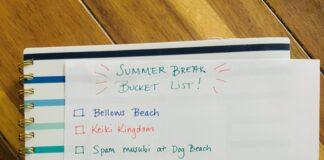 SUMMER BREAK
BUCKET LIST!
Bellows Beach
Keiki Kingdom
Spam musubi at Dog Beach